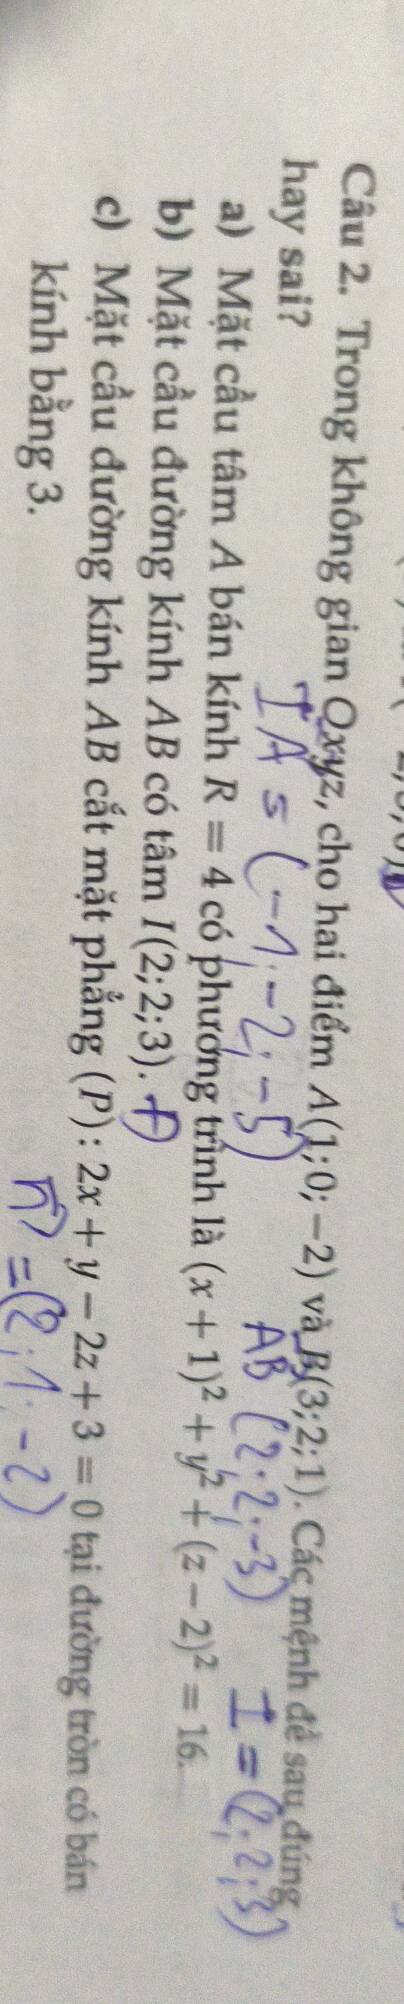 Câu 2. Trong không gian Oxyz, cho hai điểm A(1;0;−2) và B(3;2;1). Các mệnh đề sau đúng
hay sai?
IA = (−1;−2;−5) AB (2;2;−3) I = (2;2;3)
a) Mặt cầu tâm A bán kính R = 4 có phương trình là (x + 1)² + y² + (z − 2)² = 16.
b) Mặt cầu đường kính AB có tâm I(2;2;3).
c) Mặt cầu đường kính AB cắt mặt phẳng (P): 2x + y − 2z + 3 = 0 tại đường tròn có bán
kính bằng 3.
n = (2;1;−2)